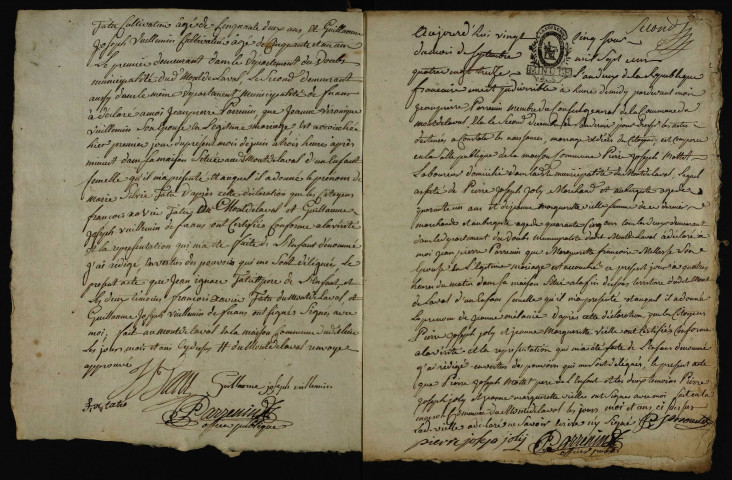 fatu Cultivateur âgé de Cinquante deux ans, et Guillaume
Joseph Vuillemin Cultivateur âgé de Cinquante et un an
Le premier demeurant dans le département du Doubs
municipalité du Montdelaval, Le Second demeurant
aussy dans le même département municipalité de fuans
a déclaré a moi Jeanpierre Parrenin que Jeanne Véronique
Vuillemin Son Epouse en Légitime mariage est accouchée
hier premier jour du présent mois de à trois heures après
minuit dans sa maison Située au Montdelaval d'un Enfant
femelle qu'il m'a présenté et auquel il a donné le prénom de
Marie fatu d'après cette déclaration que les Citoyens
françois xavié fatu du Montdelaval et Guillaume
Joseph Vuillemin de fuans ont Certifiés Conforme a la vérité
et la représentation qui m'a été faite de l'Enfant dénommé
j'ai rédigé en vertu des pouvoirs qui me Sont délégués Le
présent acte que Jean ignace fatu père de l'Enfant et
les deux témoins françois xavié fatu du Montdelaval et
Guillaume Joseph Vuillemin de fuans ont Signés avec
moi, fait au Montdelaval en la maison Commune
les jours mois et ans Cydessus # du Montdelaval renvoye
approuvé
Guillaume joseph vuillemin
Parrenin
officier publique
Second
Aujourd'hui vingt Cinq jour
du mois de Septembre mil Sept cent
quatre vingt treize L'an deux de la République
françoise une et indivisible à heure de midy pardevant moi
Jeanpierre Parrenin Membre du Conseil général de la Commune du
Montdelaval Elu le
destinés a Constater les naissances, mariages et décès des Citoyens, est Comparu
en la Salle publique de la maison Commune Pierre Joseph Mottet
Laboureur domicilié dans ladite municipalité du Montdelaval, Lequel
assisté de Pierre Joseph Joly Marchand et aubergiste agé de
quarante un ans et de jeanne marguerite vielle femme de
marchande et aubergiste agée de quarante Cinq ans tous les deux demeurant
dans le département du Doubs et municipalité dudit Montdelaval a déclaré à
moi jean pierre Parrenin que Marguerite françoise Son
Epouse En Légitime mariage est accouchée ce présent jour à quatre
heures du matin dans sa maison Située territoire dudit Mont
de Laval d'un Enfant femelle qu'il m'a présenté et auquel il a donné
le prénom de jeanne mélanie d'après cette déclaration que les Citoyens
Pierre Joseph joly et jeanne Marguerite Vielle ont certifiés Conforme
a la vérité et la représentation qui m'a été faite de l'Enfant dénommé
j'ai rédigé en vertu des pouvoirs qui me Sont délégués, le présent acte
que Pierre Joseph Mottet père de l'Enfant et les deux témoins Pierre
Joseph joly et jeanne marguerite vielle ont Signés avec moi fait en la
maison Commune du Montdelaval les jours mois et ans ci dessus
Ladite vielle a déclaré ne Savoir écrire ny Signé
pierre josep joly
Parrenin
officier public